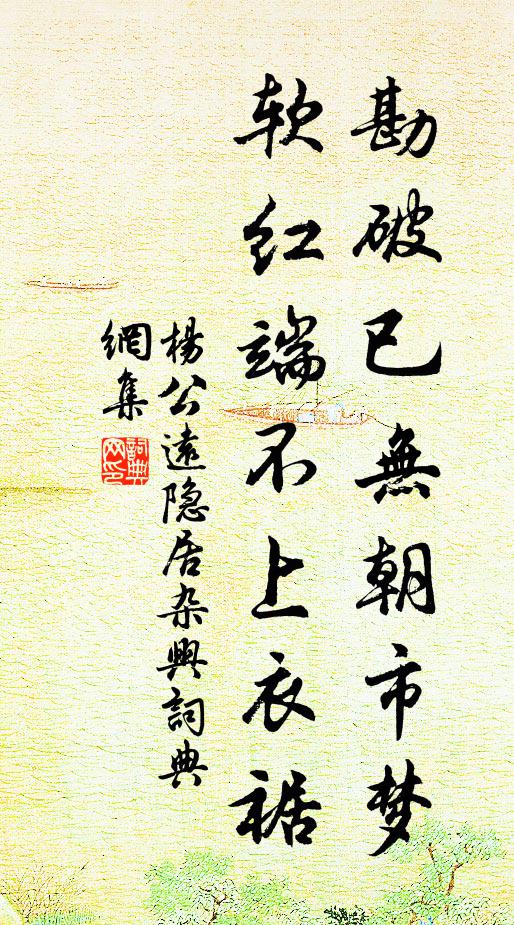 勘破已無朝市梦
软红端不上衣裾
楊公遠隐居杂興詞典
網集
詞典網印